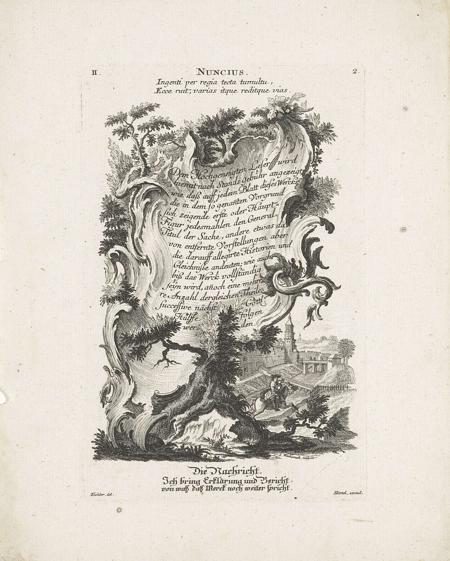 II. NUNCIUS. 2.
Ingenti per regia tecta tumultu,
Ecce ruit; varias itque reditque vias.
Dem Hochgeneigten Leser wird
hiemit nach Stands Gebühr angezeigt
wie daß auf jedem Blatt dieses Wercks
die in dem so genanten Vorgrund
sich zeigende erste oder Haupt-
Figur jedesmahlen den General-
Titul der Sache, andere etwas da
von entfernte Vorstellungen aber
die darauf allegirte Historien und
Gleichnuße andeuten; wie auch
biß das Werck vollständig
seyn wird, annoch eine mehre
re Anzahl dergleichen Theile
successive nächst Gottl.
Hülffe folgen
wer den
Die Nachricht.
Ich bring Erklärung und Bericht
von waß daß Werck noch weiter spricht.
Eichler del.
Hertel, excud.